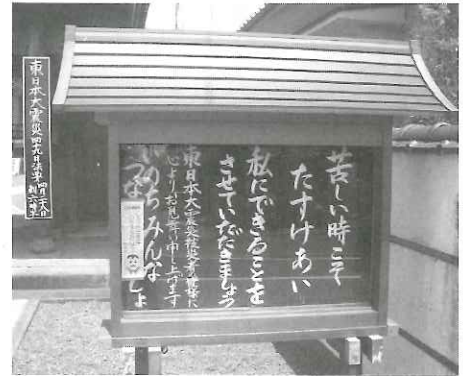 苦しい時こそ
たすけあい
私にできることを
させていただきましょう
東日本大震災被災者の皆様に
心よりお見舞い申し上げます
いのち みんな
つな しょ
東日本大震災四十九日法要